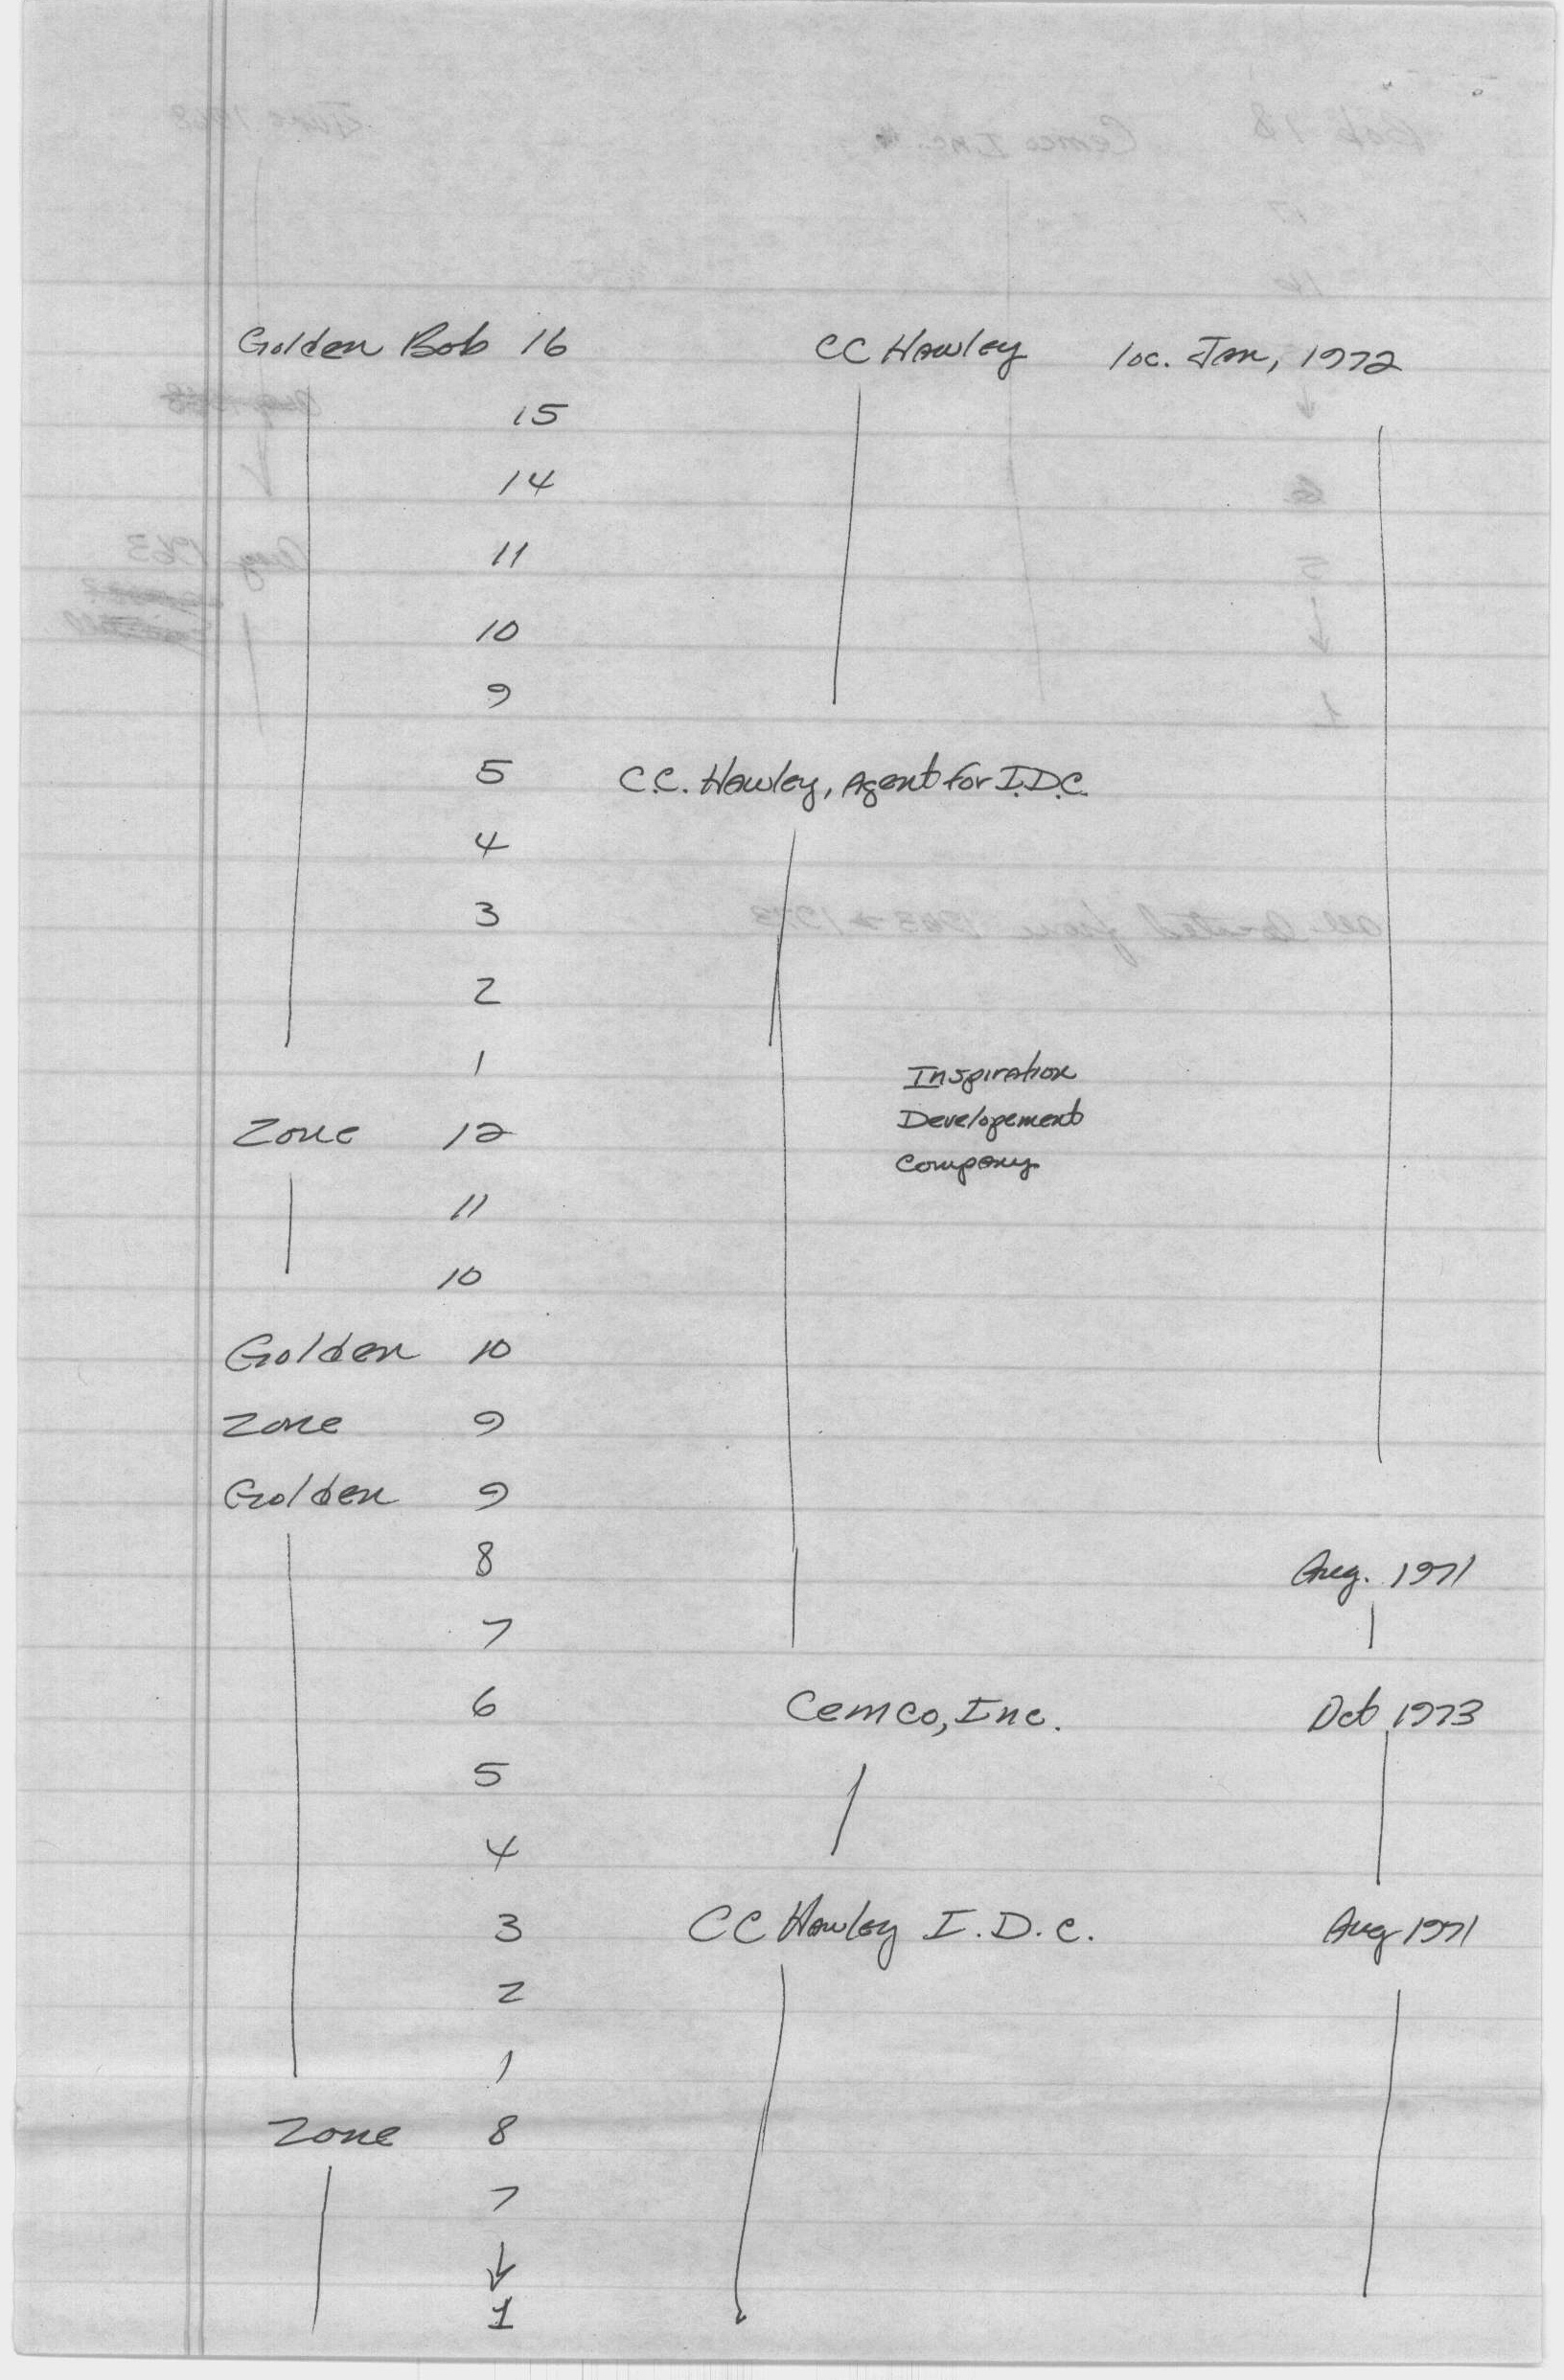 Golden Bob 16 CC Hawley loc. Jan, 1972
15
14
11
10
9
5 C.C. Hawley, Agent for I.D.C.
4
3
2
1 Inspiration
Zone 12 Developement
Company
11
10
Golden 10
Zone 9
Golden 9
8 Aug. 1971
7
6 Cemco, Inc. Oct 1973
5
4
3 CC Hawley I.D.C. Aug 1971
2
1
Zone 8
7
↓
1